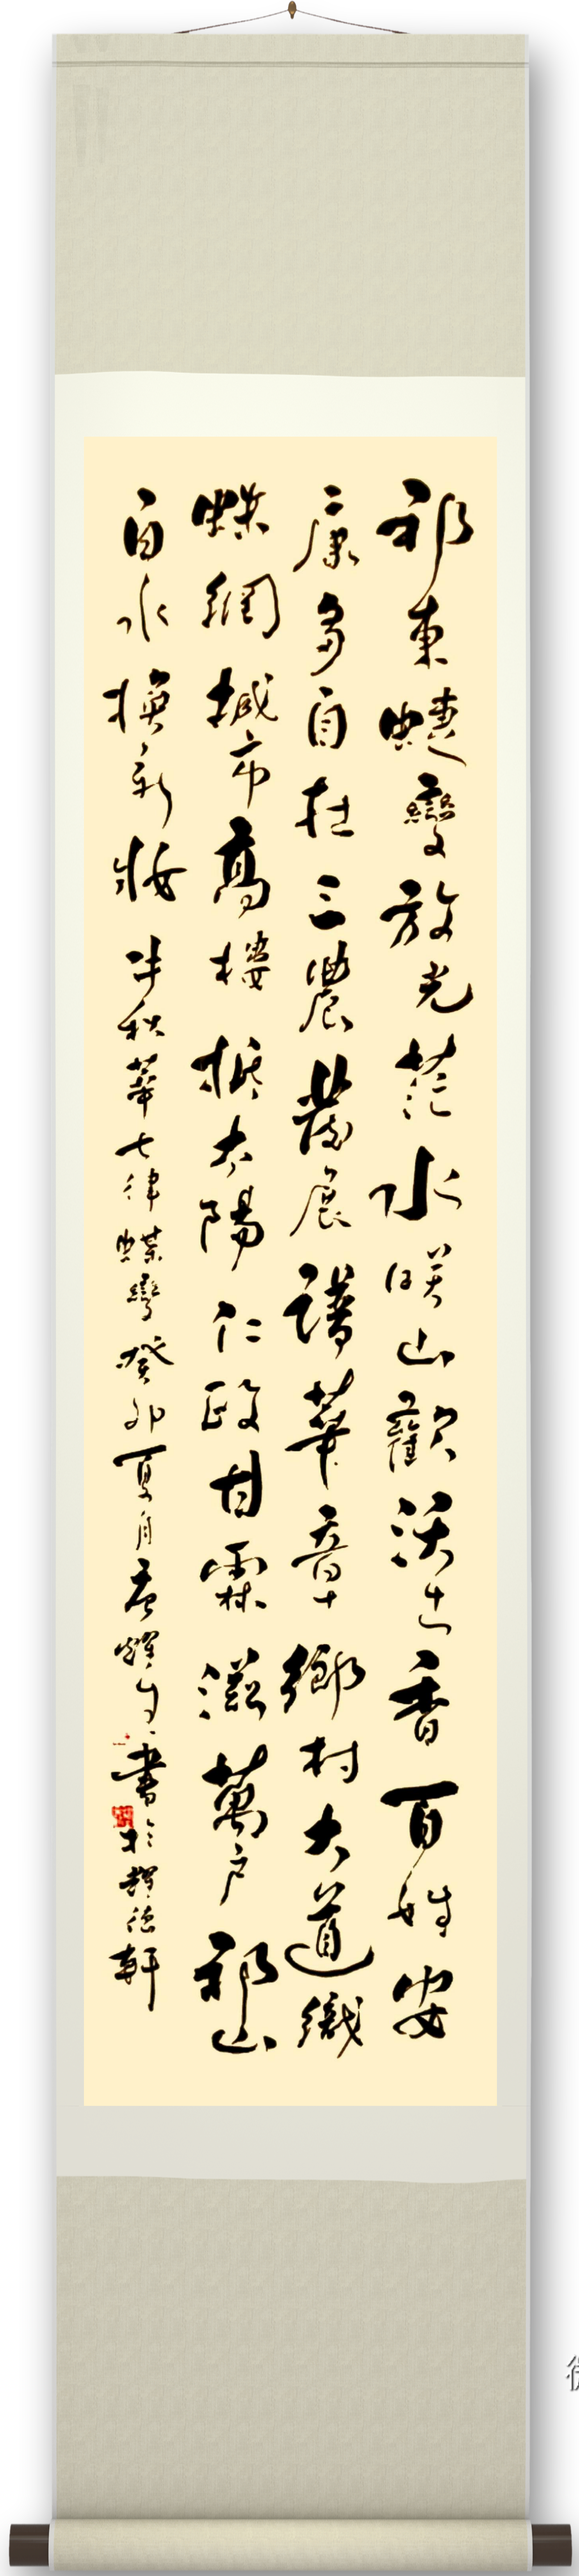 祁東蝶變放光茫水咲山歡沃土香百姓安
康多自在三農發展譜華章鄉村大道織
蝶網城市高樓抵太陽仁政甘霖滋萬戶祁山
白水換新妝牛秋華七律蝶變癸卯夏月唐輝生書於靜德軒